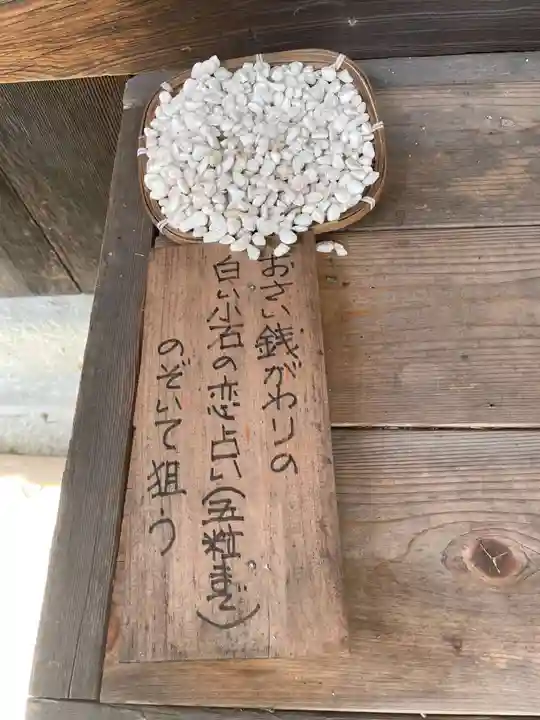 おさい銭がわりの
白い小石の恋占い(五粒まで)
のぞいて狙う